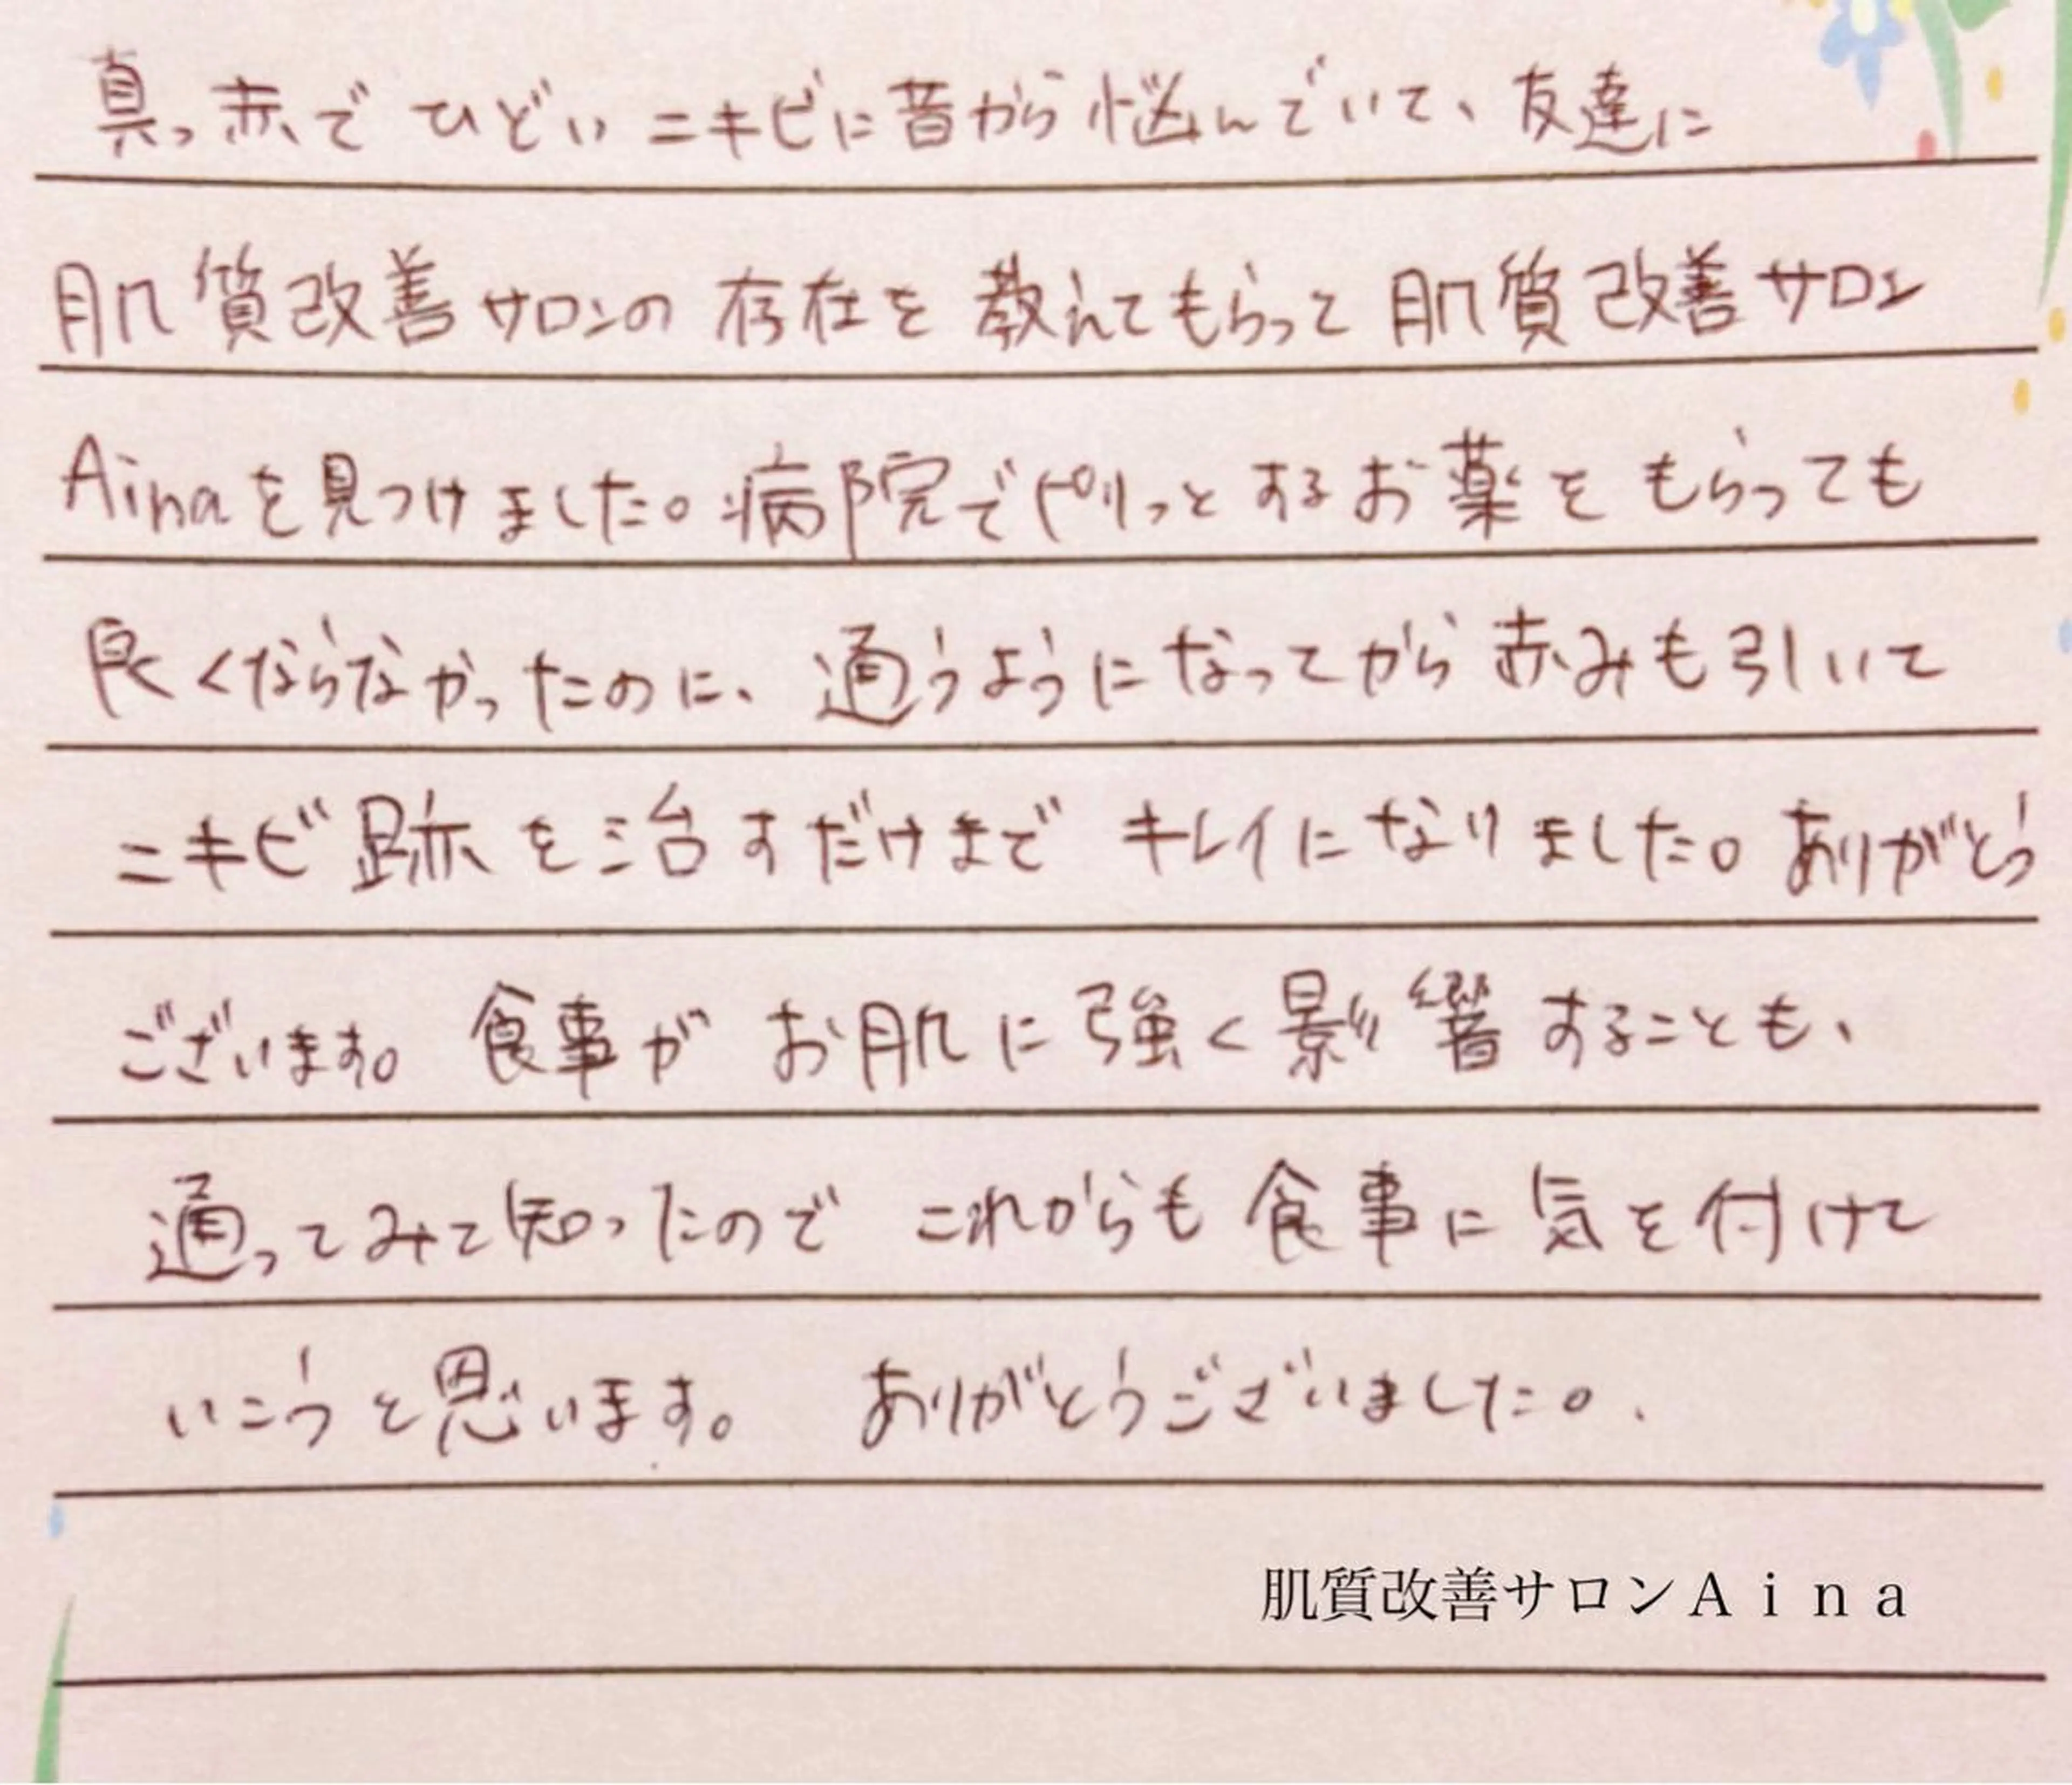 真っ赤でひどいニキビに昔から悩んでいて、友達に
肌質改善サロンの存在を教えてもらって肌質改善サロン
Ainaを見つけました。病院でピリっとするお薬をもらっても
良くならなかったのに、通うようになってから赤みも引いて
ニキビ跡を治すだけまでキレイになりました。ありがとう
ございます。食事がお肌に強く影響することも、
通ってみて知ったのでこれからも食事に気を付けて
いこうと思います。 ありがとうございました。
肌質改善サロンAina